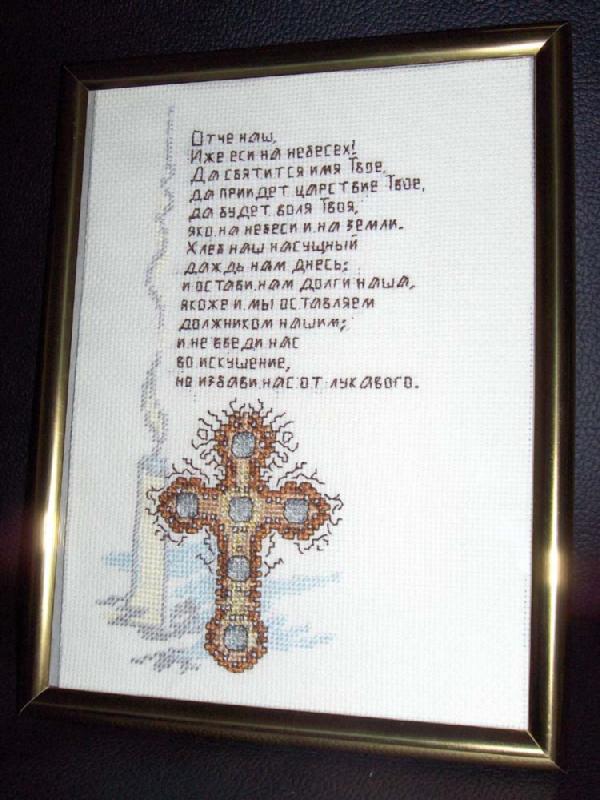 Отче наш,
Иже еси на небесех!
Да святится имя Твое,
да приидет царствие Твое,
да будет воля Твоя,
яко на небеси и на земли.
Хлеб наш насущный
даждь нам днесь;
и остави нам долги наша,
якоже и мы оставляем
должником нашим;
и не введи нас
во искушение,
но избави нас от лукавого.